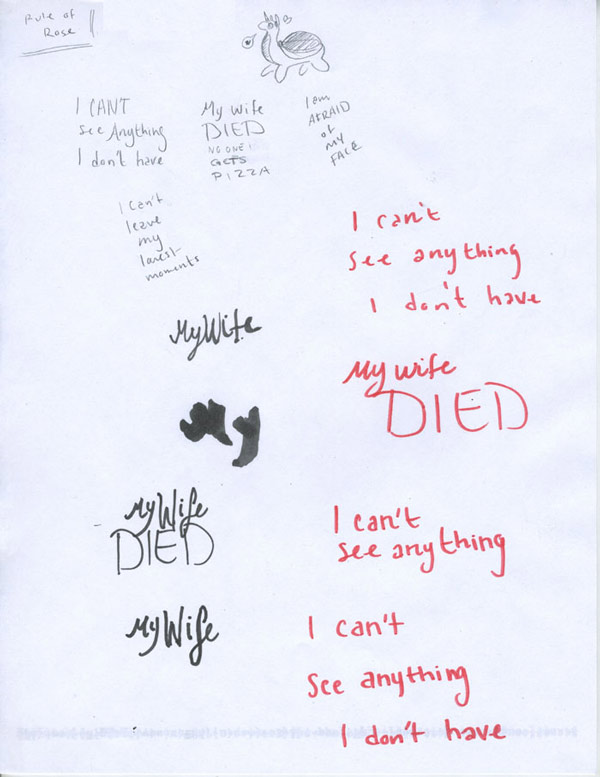 Rule of
Rose
I CANT
See Anything
I don't have
My Wife
DIED
NO ONE!
GETS
PIZZA
I am
AFRAID
of
MY
FACE
I can't
leave
my
moments
I can't
see anything
I don't have
My Wife
My wife
DIED
My
My Wife
DIED
I can't
see anything
My Wife
I can't
See anything
I don't have